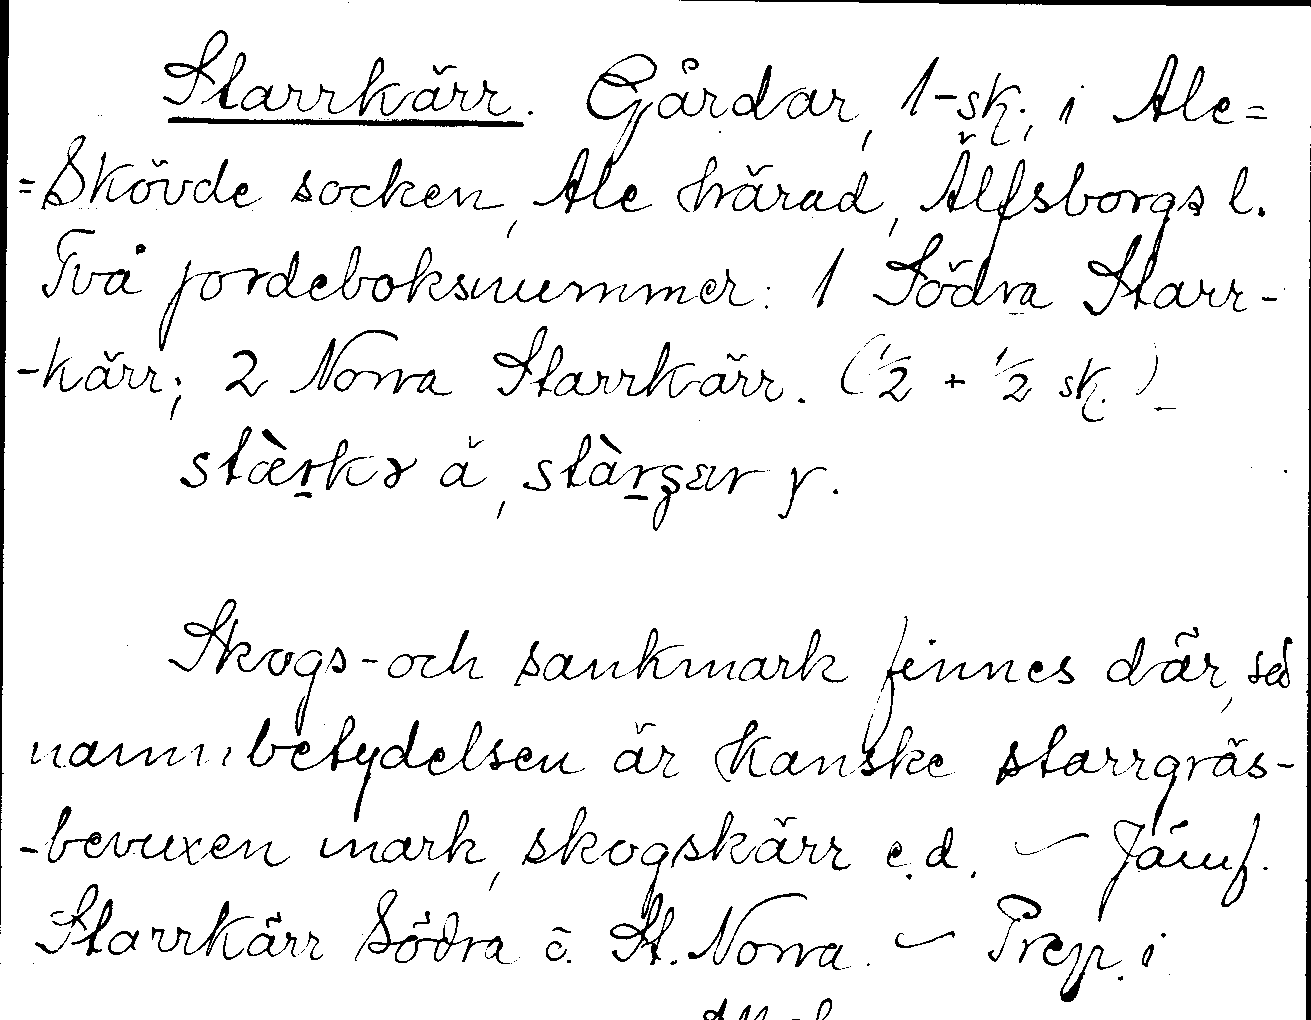 Starrkärr. Gårdar, 1-sk., i Ale=
=Skövde socken, Ale härad, Älfsborgs l.
Två jordeboksnummer: 1 Södra Starr-
-kärr; 2 Norra Starrkärr. (1/2 + 1/2 sk.)_
ä, y.
Skogs- och sankmark finnes där, så
namnbetydelsen är kanske starrgräs-
-bevuxen mark, skogskärr e.d. – Jämf.
Starrkärr Södra o. St. Norra. – Prep. i